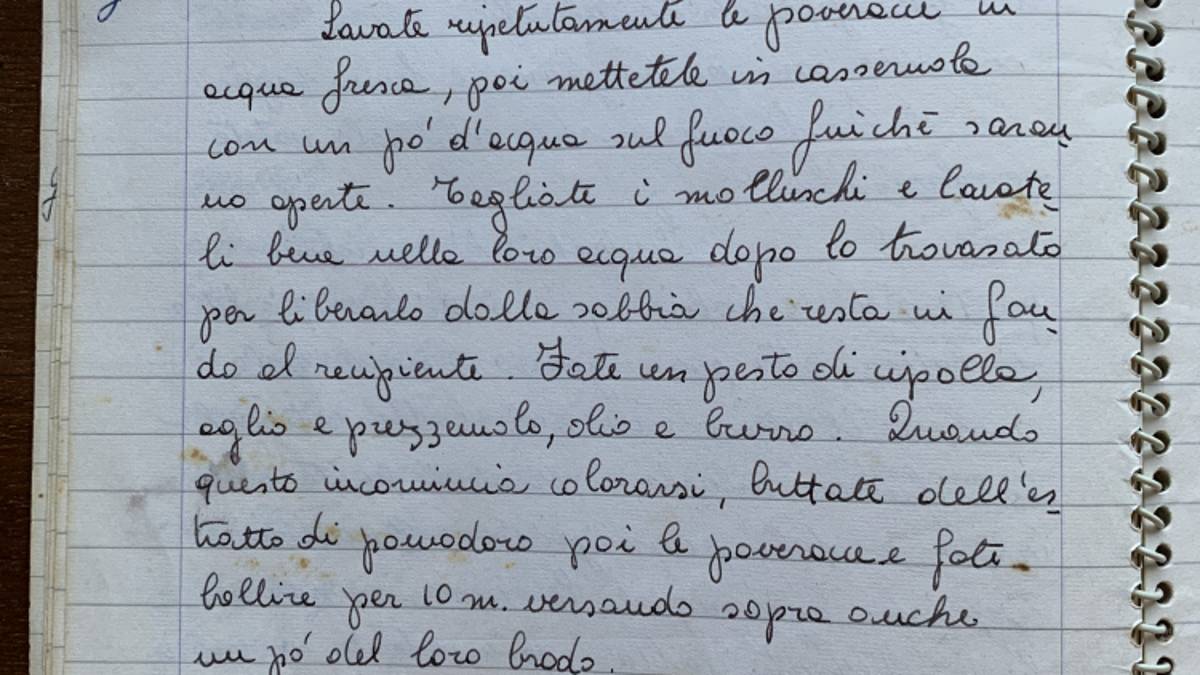 Lavate ripetutamente le poveracce in
acqua fresca, poi mettetele in casseruola
con un pó d'acqua sul fuoco finchē saran
no aperte. Togliete i molluschi e lavate
li bene nella loro acqua dopo lo travasato
per liberarlo dalla sabbia che resta in fon
do al recipiente. Fate un pesto di cipolla,
aglio e prezzemolo, olio e burro. Quando
questo incomincia colorarsi, buttate dell'es
tratto di pomodoro poi le poveracce e fate
bollire per 10 m. versando sopra anche
un pó del loro brodo.